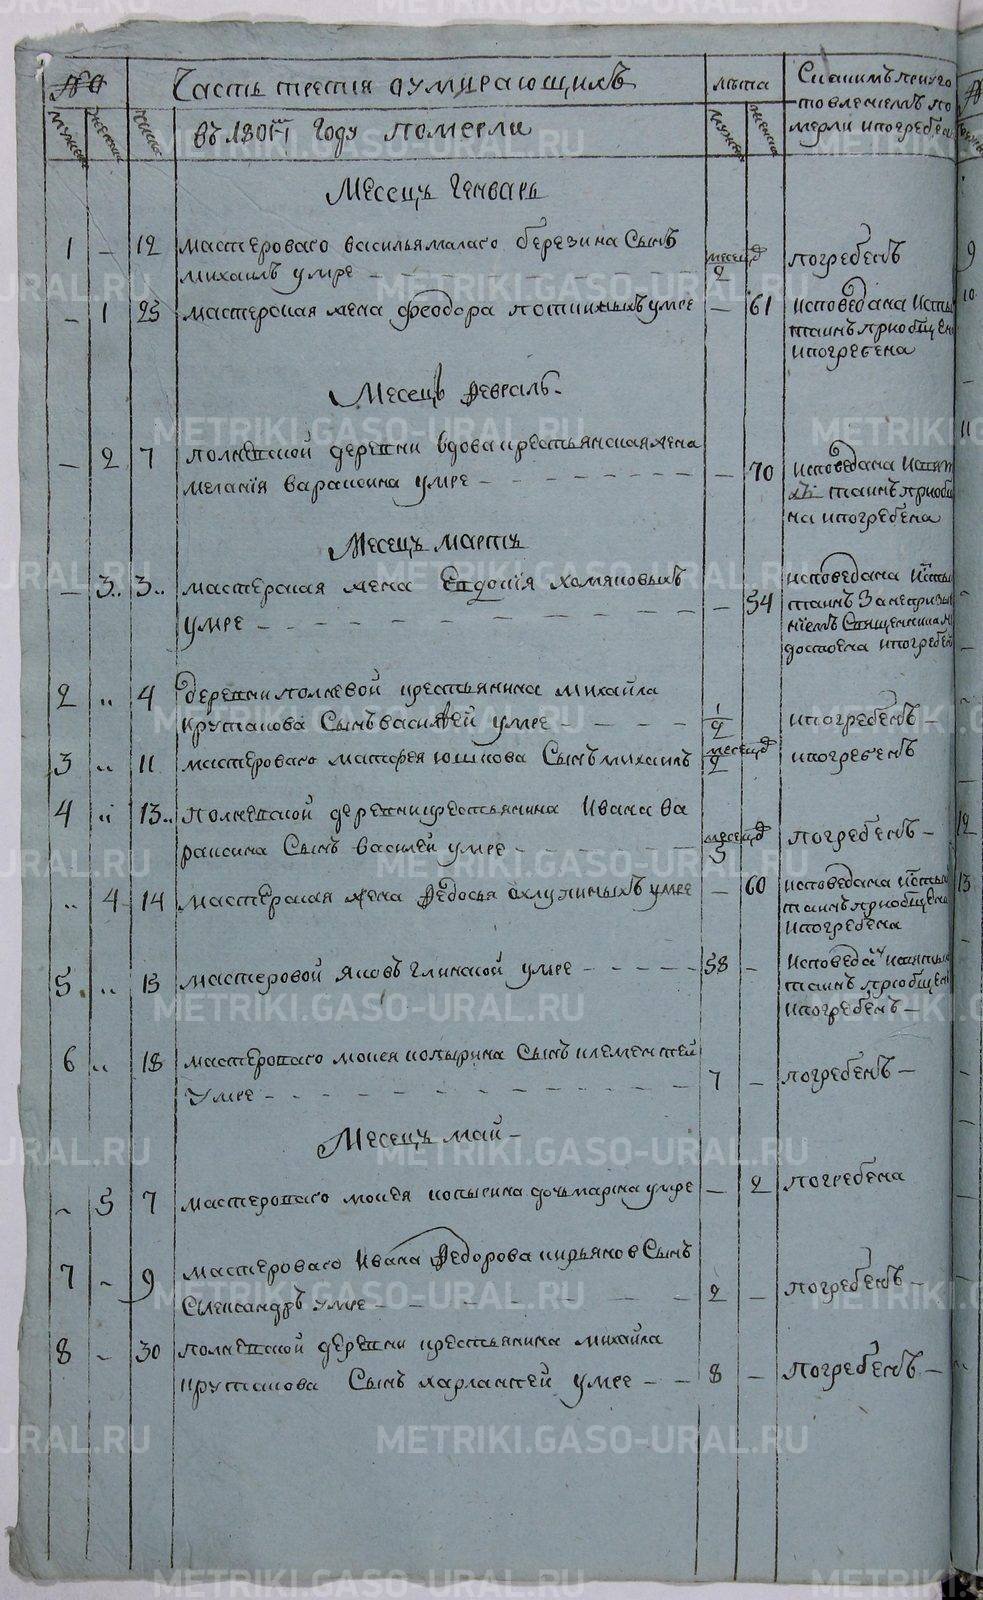 №
Часть третия оумирающихъ
лѣта
Скакимъ приуго
товлениемъ по
мерли ипогребен
мужеск
женска
числа
въ 1801м году померли
мужеск
женска
Месецъ Генварь
1 – 12 мастероваго василья малаго березина Сынъ
михаилъ умре – месецъ 2 погребенъ
– 1 25 мастерская жена феодора потиныхъ умре – 61 исповедана исты
таинъ приобщен
ипогребена
Месецъ Февраль
– 2 7 полкевской деревни вдова крестьянская жена
мелания вараксина умре – – 70 исповедана исвят
хъ таинъ приобщ
на ипогребена
Месецъ мартъ
– 3 3 мастерская жена Евдокїя хомяковыхъ
умре – – 54 исповедана исты
таинъ За непризы
ниемъ Священника не
достоена ипогребен
2 „ 4 деревни полкевой крестьянина михаила
крутакова Сынъ василей умре – 1/2 ипогребенъ –
3 „ 11 мастероваго матфея юшкова Сынъ михаилъ месецъ 2 ипогребенъ
4 „ 13 полкевской деревни крестьянина Ивана ва
раксина Сынъ василей умре – месецъ 5 погребенъ –
„ 4 14 мастерская жена Федосья охлупиныхъ умре – 60 исповедана исты
таинъ приобщена
ипогребена
5 „ 15 мастеровой яковъ глинской умре – 58 – исповедан исвятых
таинъ приобщен
ипогребенъ –
6 „ 18 мастероваго моисея копырина Сынъ клементей
умре – 7 – погребенъ –
Месецъ май –
– 5 7 мастероваго моисея копырина дочь марна умре – 2 погребена
7 – 9 мастероваго Ивана Федорова кирьянов Сынъ
Александръ умре – 2 – погребенъ –
8 – 30 полкевской деревни крестьянина михаила
крутакова Сынъ харлампей умре – 8 – погребенъ –
9
10
11
12
13
METRIKI.GASO-URAL.RU